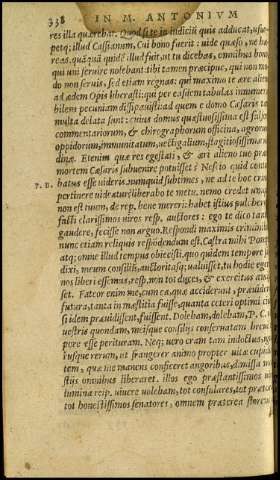 338 IN M. ANTONIVM
res illa quærebat. Quod si te in iudiciū quis adducat, usur
petq; illud Cassianum, Cui bono fuerit: uide quæso, ne hæ
reas. quāquā quidē illud fuit, ut tu dicebas, omnibus bono,
qui uni seruire nolebant: tibi tamen præcipue, qui non mo
do non seruis, sed etiam regnas: qui maximo te ære alieno
ad ædem Opis liberasti: qui per easdem tabulas innumera
bilem pecuniam dissipauisti: ad quem e domo Cæsaris tam
multa delata sunt: cuius domus quæstuosissima est falsorum
commentariorum, & chirographorum officina, agrorum,
oppidorum, immunitatum, uectigalium, flagitiosissimæ nun
dinæ. Etenim quæ res egestati, & æri alieno tuo præter
mortem Cæsaris subuenire potuisset? Nescio quid contur
P. R. batus esse uideris. numquid subtimes, ne ad te hoc crimen
pertinere uideatur? libero te metu. nemo credet unquam.
non est tuum, de rep. bene mereri: habet istius pulcherrimi
facti clarissimos uiros resp. auctores: ego te dico tantum
gaudere, fecisse non arguo. Respondi maximis criminibus:
nunc etiam reliquis respōdendum est. Castra mihi Pompeii,
atq; omne illud tempus obiecisti. quo quidem tempore si, ut
dixi, meum consiliū, auctoritasq; ualuisset, tu hodie egeres,
nos liberi essemus, resp. non tot duces, & exercitus amisis
set. Fateor enim me, cum ea, quæ acciderunt, prouiderem
futura, tanta in mœstitia fuisse, quanta cæteri optimi ciues,
si idem præuidissent, fuissent. Dolebam, dolebam, P. C. remp.
uestris quondam, meisque consiliis conseruatam breui tem
pore esse perituram. Neq; uero eram tam indoctus, ignarus
iusque rerum, ut frangerer animo propter uitæ cupidita
tem, quæ me manens conficeret angoribus, dimissa mole
stiis omnibus liberaret. illos ego præstantissimos uiros,
lumina reip. uiuere uolebam, tot consulares, tot prætorios,
tot honestissimos senatores, omnem præterea florem